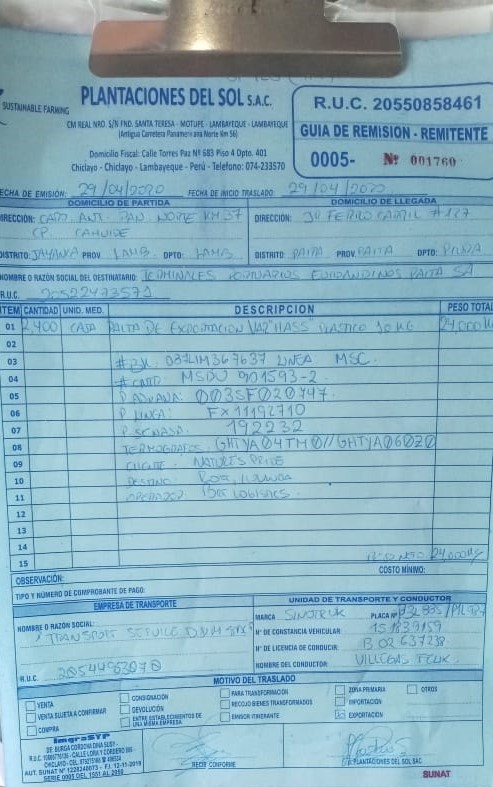 SUSTAINABLE FARMING
PLANTACIONES DEL SOL S.A.C.
CM REAL NRO. S/N FND. SANTA TERESA - MOTUPE - LAMBAYEQUE - LAMBAYEQUE
(Antigua Carretera Panamericana Norte Km 56)
Domicilio Fiscal: Calle Torres Paz Nº 683 Piso 4 Dpto. 401
Chiclayo - Chiclayo - Lambayeque - Perú - Telefono: 074-233570
R.U.C. 20550858461
GUIA DE REMISION - REMITENTE
0005- Nº 001760
FECHA DE EMISIÓN: 29/04/2020 FECHA DE INICIO TRASLADO: 29/04/2020
DOMICILIO DE PARTIDA DOMICILIO DE LLEGADA
DIRECCIÓN: CARR. ANT. PAN. NORTE KM 37 DIRECCIÓN: JR FERROCARRIL #127
CP. CAHUIDE
DISTRITO: JAYANCA PROV. LAMB. DPTO: LAMB. DISTRITO: PAITA PROV PAITA DPTO: PIURA
NOMBRE O RAZÓN SOCIAL DEL DESTINATARIO: TERMINALES PORTUARIOS EUROANDINOS PAITA SA
R.U.C. 20522473571
ITEM CANTIDAD UNID. MED. DESCRIPCION PESO TOTAL
01 2,400 CAJA PALTA DE EXPORTACION VAR "HASS" PLASTICO 10 KG 24,000 KG
02
03 #BK: 037LIM367637 LINEA MSC.
04 #CNTD: MSDU 901593-2
05 P. ADUANA: 003SF020747
06 P. LINEA: FX11192710
07 P. SENASA: 192232
08 TERMOGRAFOS: GHTYA04TM0//GHTYA06020
09 CLIENTE: NATURE'S PRIDE
10 DESTINO: HOLANDA
11 OPERADOR: LOGISTICS.
12
13
14
15 PESO NETO 24,000 KG
COSTO MÍNIMO:
OBSERVACIÓN:
TIPO Y NÚMERO DE COMPROBANTE DE PAGO:
EMPRESA DE TRANSPORTE UNIDAD DE TRANSPORTE Y CONDUCTOR
NOMBRE O RAZÓN SOCIAL: MARCA SINOTRUK PLACA Nº
TRANSPORT SERVICE Nº DE CONSTANCIA VEHICULAR: 151839159
Nº DE LICENCIA DE CONDUCIR: B 02 637238
R.U.C. NOMBRE DEL CONDUCTOR: VILLEGAS FELIX
MOTIVO DEL TRASLADO
VENTA CONSIGNACIÓN PARA TRANSFORMACIÓN ZONA PRIMARIA OTROS
VENTA SUJETA A CONFIRMAR DEVOLUCIÓN RECOJO BIENES TRANSFORMADOS IMPORTACIÓN
COMPRA ENTRE ESTABLECIMIENTOS DE UNA MISMA EMPRESA EMISOR ITINERANTE EXPORTACIÓN
ImgraSYP
DE: BURGA CORDOVA DINA SUSY -
AUT. SUNAT Nº 1226240073 - F.I. 12-11-2019
SERIE 0005 DEL 1551 AL 2050
RECIBÍ CONFORME
P. PLANTACIONES DEL SOL SAC
SUNAT